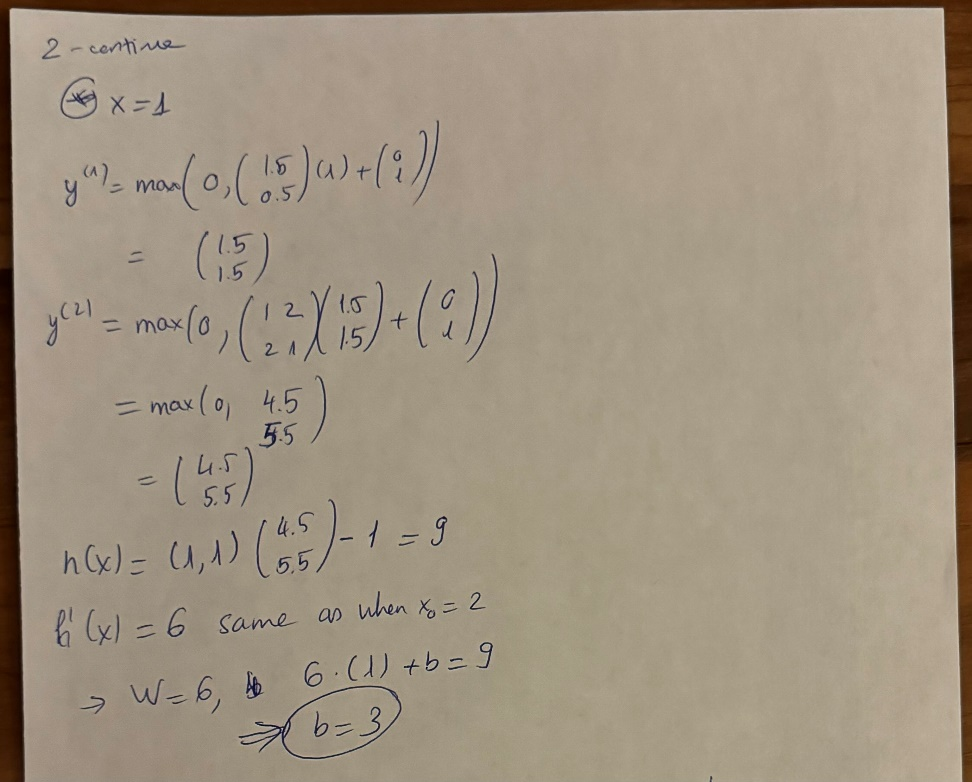 2 - continue
* x = 1
y^(1) = max(0, (1.5 0.5)(1) + (0 1))
= (1.5 1.5)
y^(2) = max(0, (1 2 2 1)(1.5 1.5) + (0 1))
= max(0, 4.5 5.5)
= (4.5 5.5)
h(x) = (1,1)(4.5 5.5) - 1 = 9
h'(x) = 6 same as when x₀ = 2
→ W = 6, 6·(1) + b = 9
⇒ b = 3